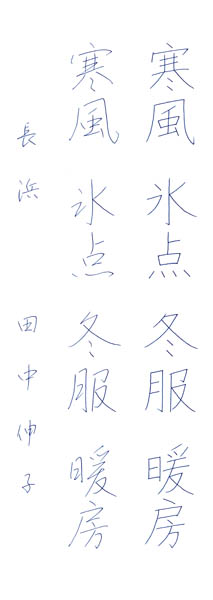 寒風 氷点 冬服 暖房
寒風 氷点 冬服 暖房
長浜 田中伸子